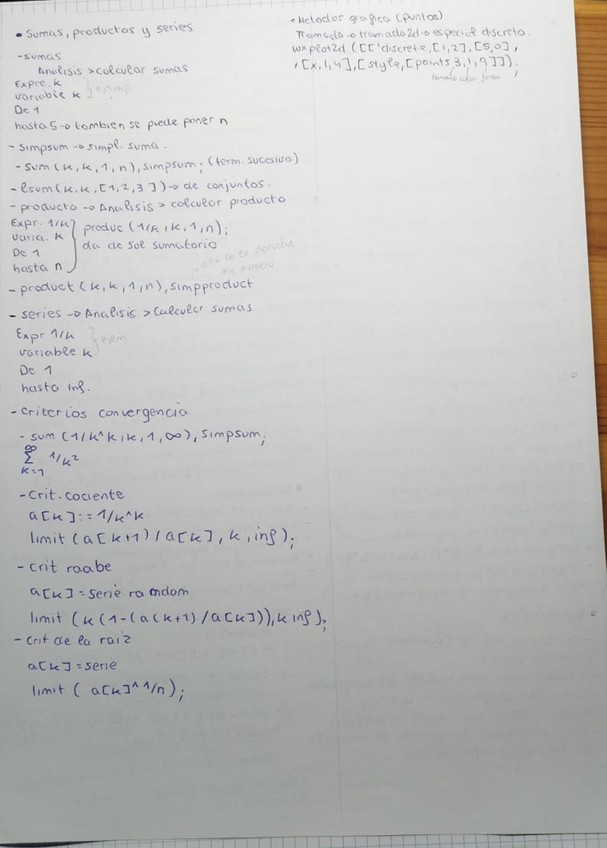 • Sumas, productos y series
- sumas
Analisis > calcular sumas
Expre. k
variable k } ejemp.
De 1
hasta 5 → tambien se puede poner n
- simpsum → simpl. suma.
- sum (k, k, 1, n), simpsum; (term. sucesivo)
- lsum (k, k, [1, 2, 3]) → de conjuntos.
- producto → Analisis > calcular producto
Expr. 1/k
varia. k
De 1
hasta n
} produc (1/k, k, 1, n);
da de sol sumatorio
- product (k, k, 1, n), simpproduct
- series → Analisis > Calcular sumas
Expr 1/k
variable k } ejem
De 1
hasta inf.
- criterios convergencia
- sum (1/k^k, k, 1, ∞), simpsum;
∞
Σ 1/k²
k=1
- Crit. cociente
a[k]:=1/k^k
limit (a[k+1)/a[k], k, inf);
- crit raabe
a[k] = serie random
limit (k(1-(a(k+1)/a[k])), k inf);
- crit de la raiz
a[k] = serie
limit ( a[k]^^1/n);
• Metodor grafico (puntos)
Tramado → tramado 2d → especial discreto.
wxplot2d ([['discrete, [1,2], [5,0],
, [x,1,4], [style, [points 3, 1, 9]]).
;